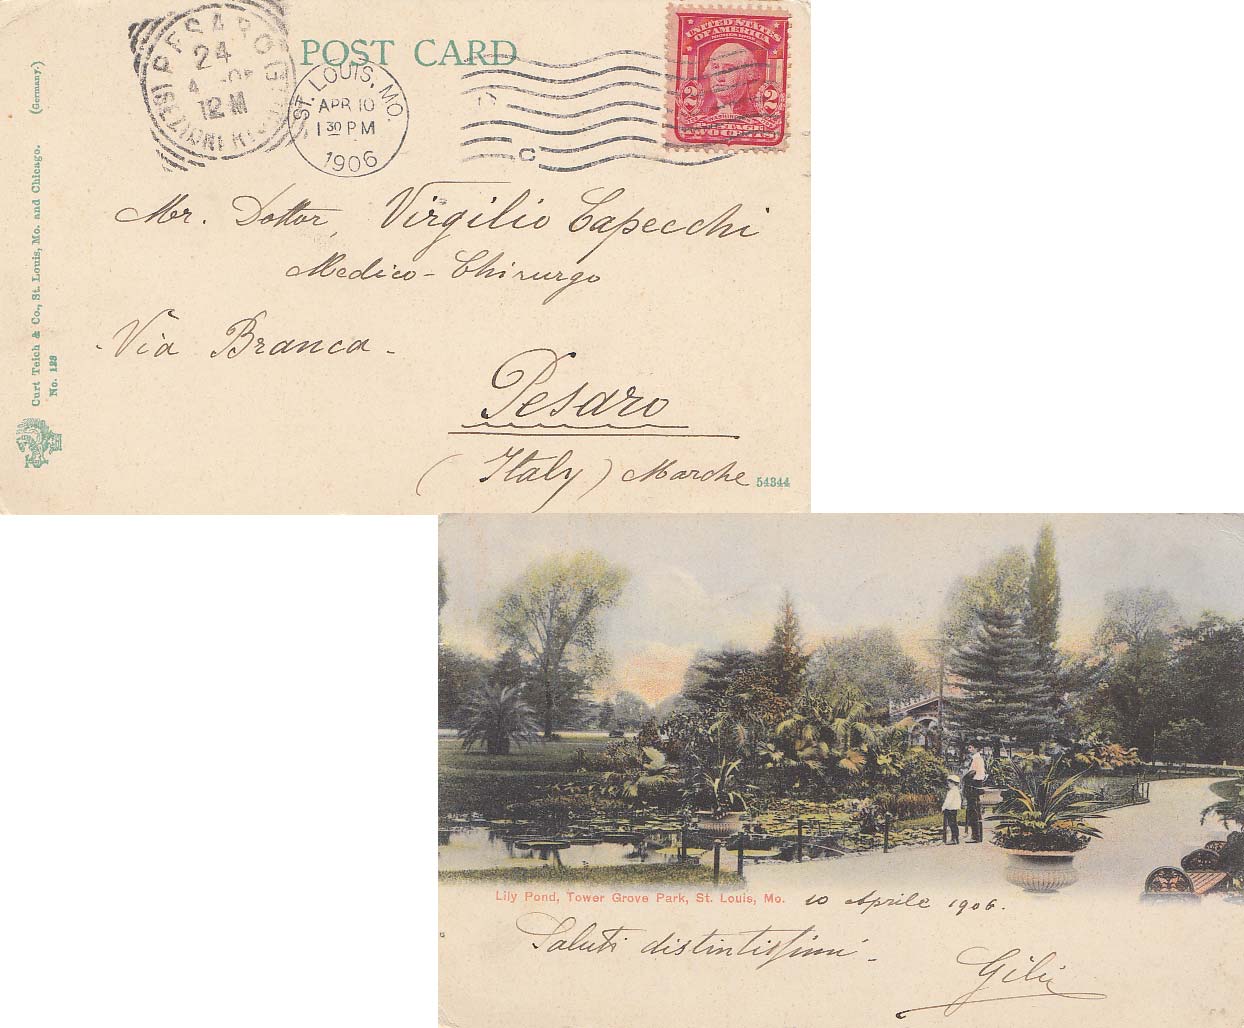 POST CARD
PESARO
24
12 M
ST. LOUIS, MO.
APR 10
1 30 PM
1906
C
UNITED STATES
OF AMERICA
2 2
TWO CENTS
Mr. Dottor, Virgilio Capecchi
Medico-Chirurgo
Via Branca -
Pesaro
(Italy) Marche
54344
Curt Teich & Co., St. Louis, Mo. and Chicago. (Germany.)
No. 128
Lily Pond, Tower Grove Park, St. Louis, Mo. 10 Aprile 1906.
Saluti distintissimi -